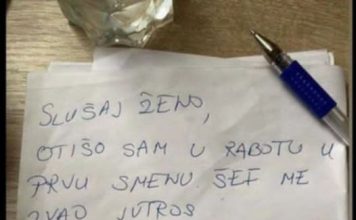 SLUŠAJ ŽENO,
OTIŠO SAM U RABOTU U
PRVU SMENU ŠEF ME
ZVAO JUTROS